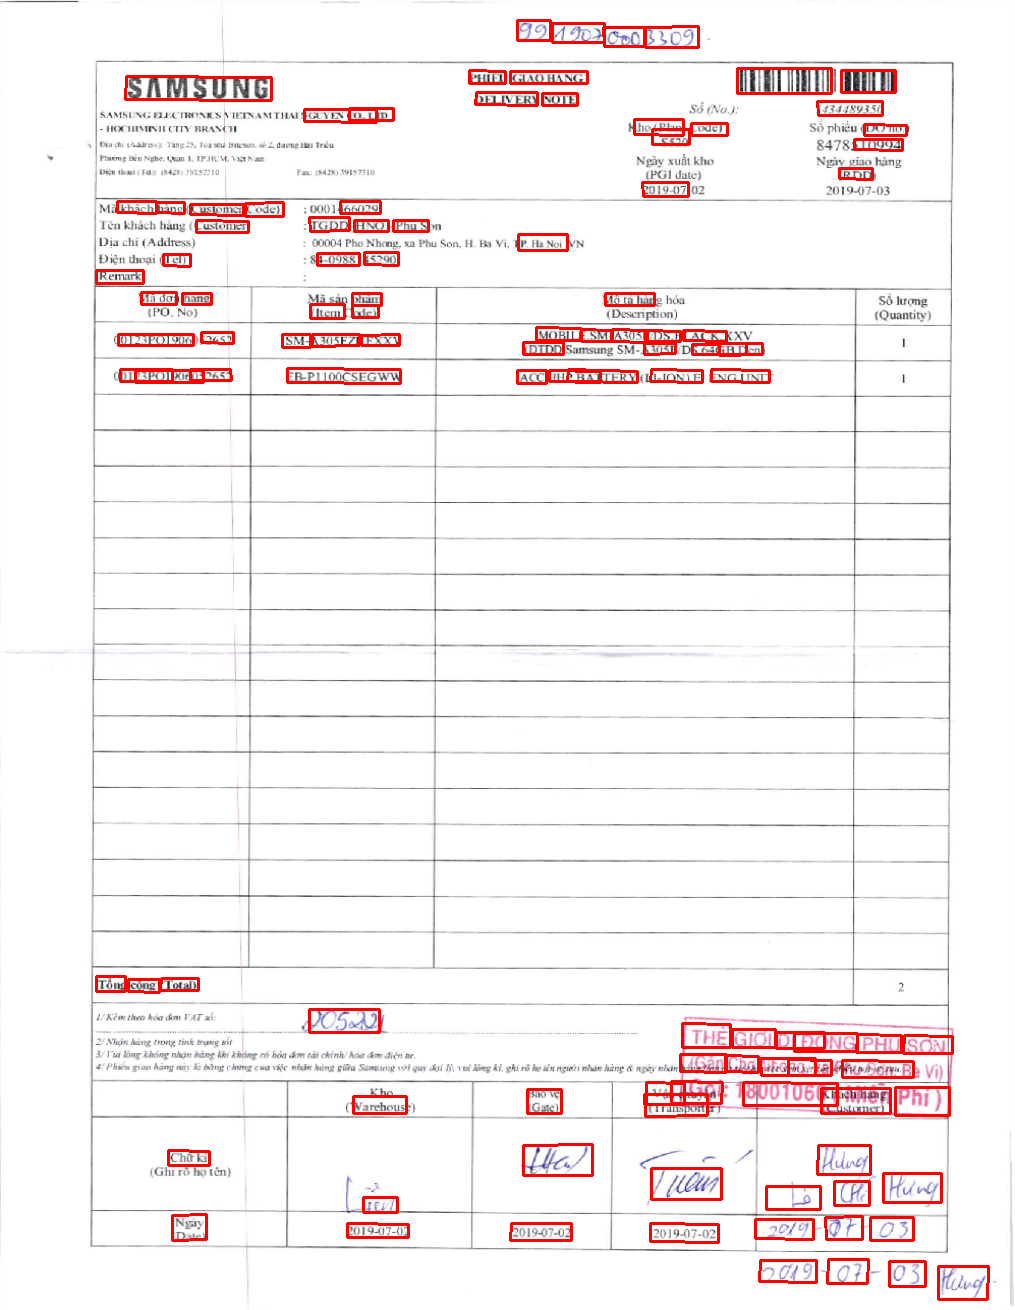 99 1907 000 3309
SAMSUNG
PHIẾU GIAO HÀNG
DELIVERY NOTE
SAMSUNG ELECTRONICS VIETNAM THAI NGUYEN CO., LTD
- HOCHIMINH CITY BRANCH
Địa chỉ (Address): Tầng 25, Tòa nhà Bitexco, số 2, đường Hải Triều
Phường Bến Nghé, Quận 1, TP.HCM, Việt Nam
Điện thoại (Tel): (8428) 39157310 Fax: (8428) 39157310
Số (No.): 434489350
Kho (Plan Code) Số phiếu (DO no.)
S520 8478510994
Ngày xuất kho Ngày giao hàng
(PGI date) (RDD)
2019-07-02 2019-07-03
Mã khách hàng (Customer Code) : 0001466029
Tên khách hàng (Customer : TGDD_HNO_Phu Son
Địa chỉ (Address) : 00004 Pho Nhong, xa Phu Son, H. Ba Vi, TP. Ha Noi VN
Điện thoại (Tel) : 84-0988 45290
Remark :
Mã đơn hàng Mã sản phẩm Mô tả hàng hóa Số lượng
(PO. No) (Item Code) (Description) (Quantity)
00123PO1906052652 SM-A305FZKFXXV MOBILE,SM-A305F/DS,BLACK,XXV 1
(DTDD Samsung SM-A305F/DS 64GB Đen)
00123PO1906052652 EB-P1100CSEGWW ACC,HHP,BATTERY (LI-ION),E ENG,UNIT 1
Tổng cộng (Total) 2
1/ Kèm theo hóa đơn VAT số: 20522
2/ Nhận hàng trong tình trạng tốt
3/ Vui lòng không nhận hàng khi không có hóa đơn tài chính/ hóa đơn điện tử.
4/ Phiếu giao hàng này là bằng chứng của việc nhận hàng giữa Samsung với quý đại lý, vui lòng kí, ghi rõ họ tên người nhận hàng & ngày nhận
THẾ GIỚI DI ĐỘNG PHÚ SƠN
(Gần Chợ Phú Sơn, Ba Vì)
Gọi: 18001060 Miễn Phí )
Kho Bảo vệ Vận chuyển Khách hàng
(Warehouse) Gate) (Transporter) (Customer)
Chữ kí
(Ghi rõ họ tên)
Hưng
Tuấn
Lò Chí Hưng
Ngày
Date)
2019-07-02 2019-07-02 2019-07-02 2019-07-03
2019-07-03 Hưng